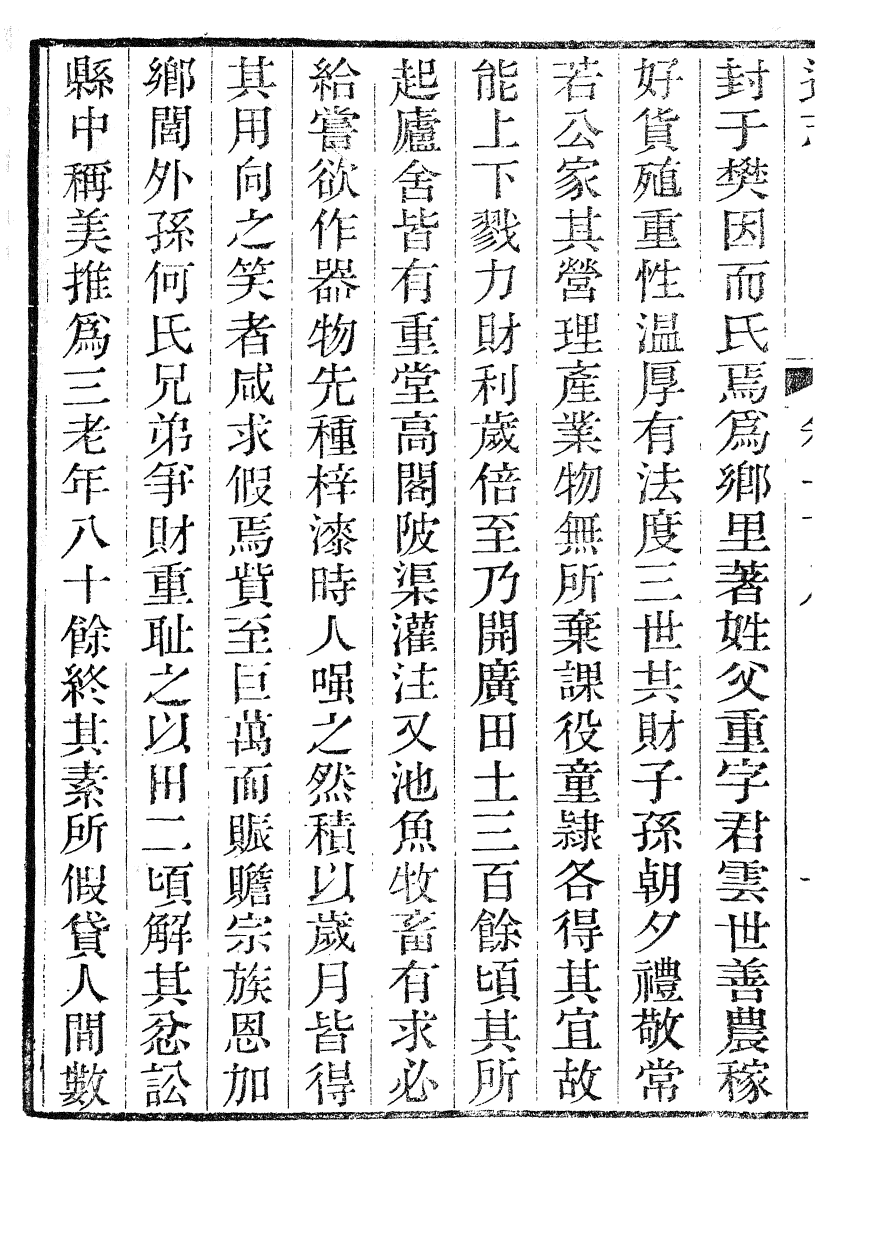 封于樊因而氏焉爲鄉里著姓父重字君雲世善農稼
好貨殖重性温厚有法度三世共財子孫朝夕禮敬常
若公家其營理產業物無所棄課役童隷各得其宜故
能上下戮力財利歲倍至乃開廣田土三百餘頃其所
起廬舍皆有重堂高閣陂渠灌注又池魚牧畜有求必
給嘗欲作器物先種梓漆時人嗤之然積以歲月皆得
其用向之笑者咸求假焉貲至巨萬而賑贍宗族恩加
鄉閭外孫何氏兄弟爭財重耻之以田二頃解其忿訟
縣中稱美推爲三老年八十餘終其素所假貸人間數